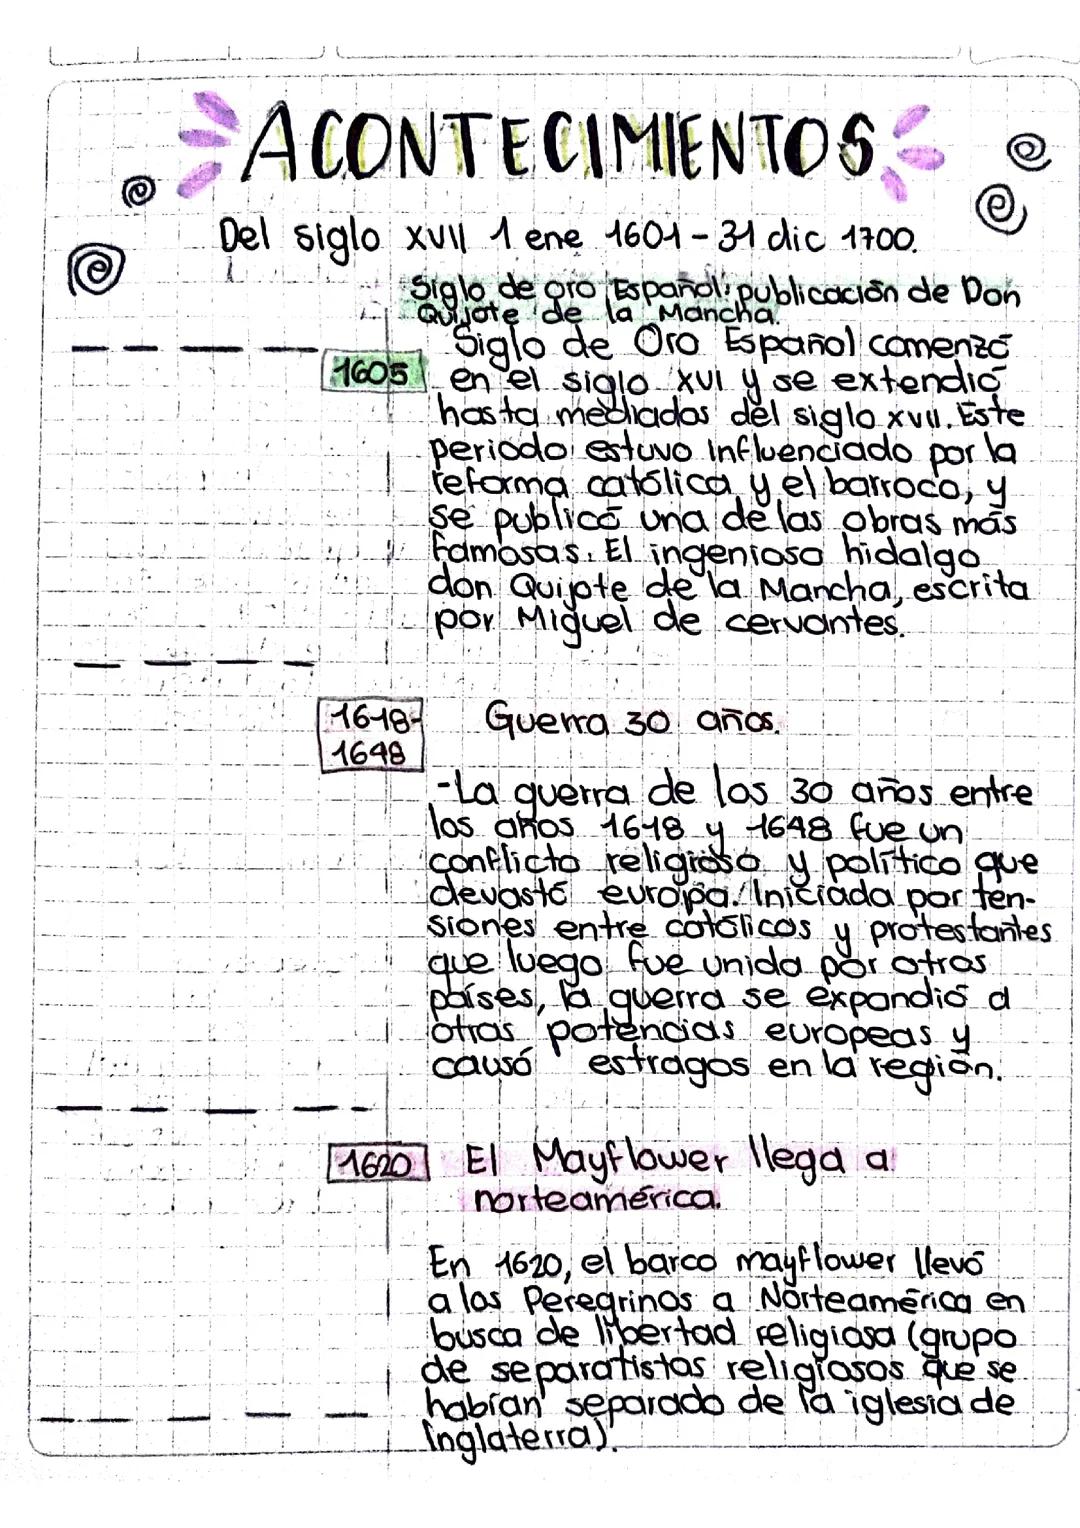 ACONTECIMIENTOS
Del siglo XVII 1 ene 1601 - 31 dic 1700.
Siglo de oro Español: publicación de Don
Quijote de la Mancha.
1605
Siglo de Oro Español comenzó
en el siglo XVI y se extendió
hasta mediados del siglo XVII. Este
periodo estuvo influenciado por la
reforma católica y el barroco, y
se publicó una de las obras más
famosas. El ingenioso hidalgo
don Quijote de la Mancha, escrita
por Miguel de cervantes.
1618-
1648
Guerra 30 años.
-La guerra de los 30 años entre
los años 1618 y 1648 fue un
conflicto religioso y político que
devastó europa. Iniciada por ten-
siones entre católicos y protestantes
que luego fue unida por otros
países, la guerra se expandió a
otras potencias europeas y
causó estragos en la región.
1620
El Mayflower llega a
norteamérica.
En 1620, el barco mayflower llevó
a los Peregrinos a Norteamérica en
busca de libertad religiosa (grupo
de separatistas religiosos que se
habían separado de la iglesia de
inglaterra).